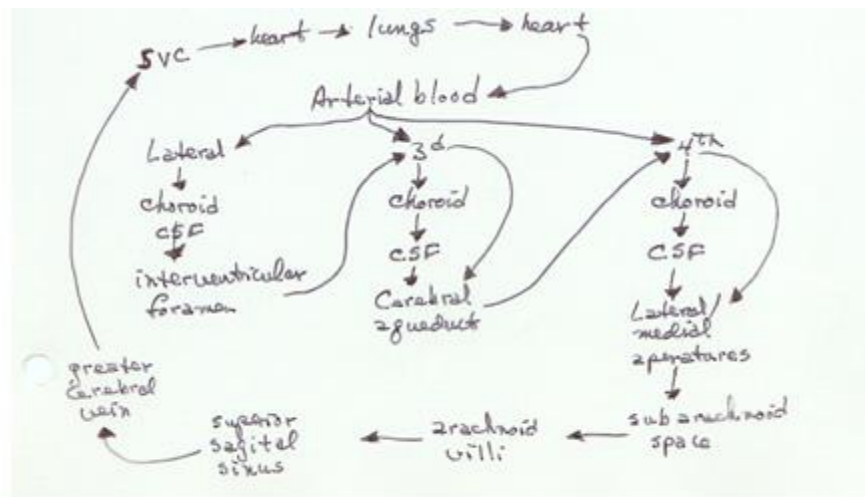 SVC → heart → lungs → heart
Arterial blood
Lateral
choroid
CSF
interventricular
foramen
3d
choroid
CSF
Cerebral
aqueduct
4th
choroid
CSF
Lateral/
medial
aperatures
subarachnoid
space
arachnoid
villi
superior
sagital
sinus
greater
cerebral
vein